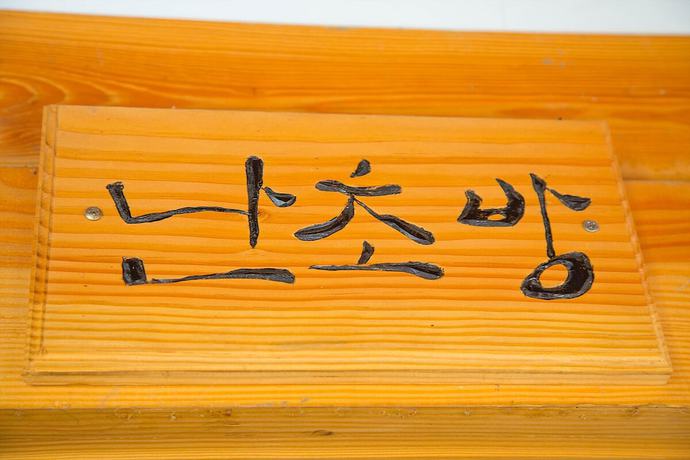 난초방